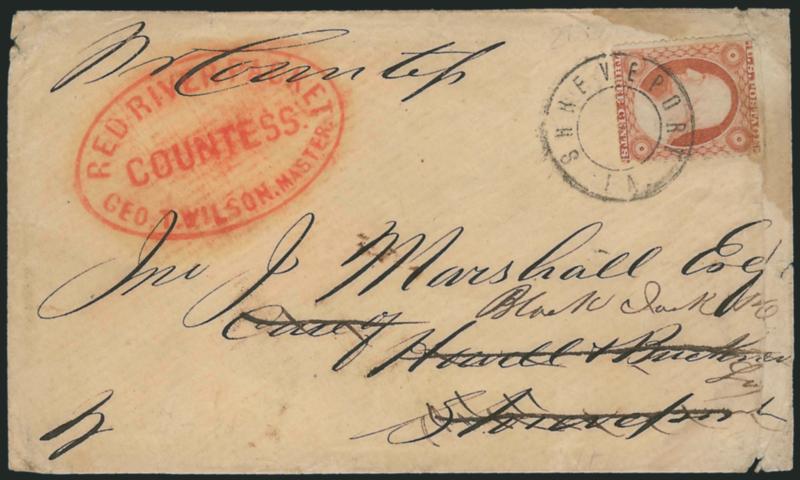 Pr Countess
RED RIVER PACKET
COUNTESS.
GEO. WILSON, MASTER.
U.S. POSTAGE
THREE CENTS.
SHREVEPORT
LA
Jno J Marshall Esq
Black Jack
Care of
Howell & Buckner
Shreveport